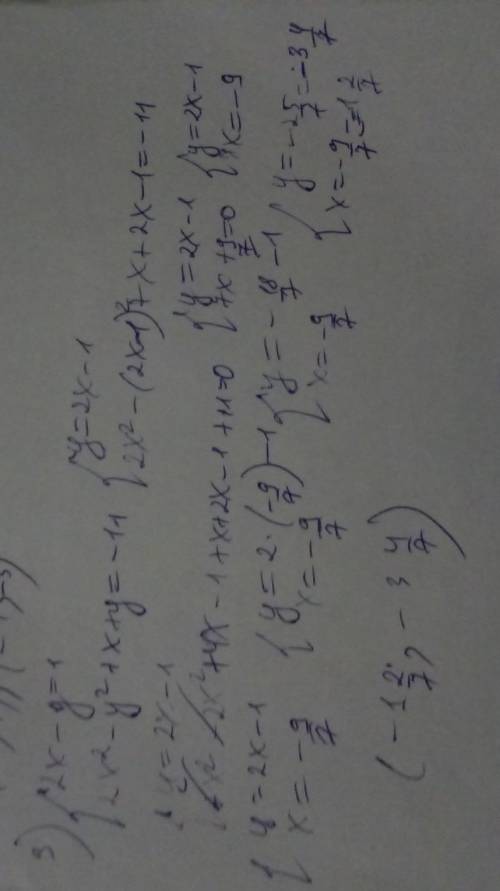 3) { 2x - y = 1
2x² - y² + x + y = -11 { y = 2x - 1
2x² - (2x-1)² + x + 2x - 1 = -11
{ y = 2x - 1
2x² - 2x² + 4x - 1 + x + 2x - 1 + 11 = 0 { y = 2x - 1
7x + 9 = 0 { y = 2x - 1
7x = -9
{ y = 2x - 1
x = -9/7 { y = 2·(-9/7) - 1
x = -9/7 { y = -18/7 - 1
x = -9/7 { y = -25/7 = -3 4/7
x = -9/7 = -1 2/7
(-1 2/7, -3 4/7)